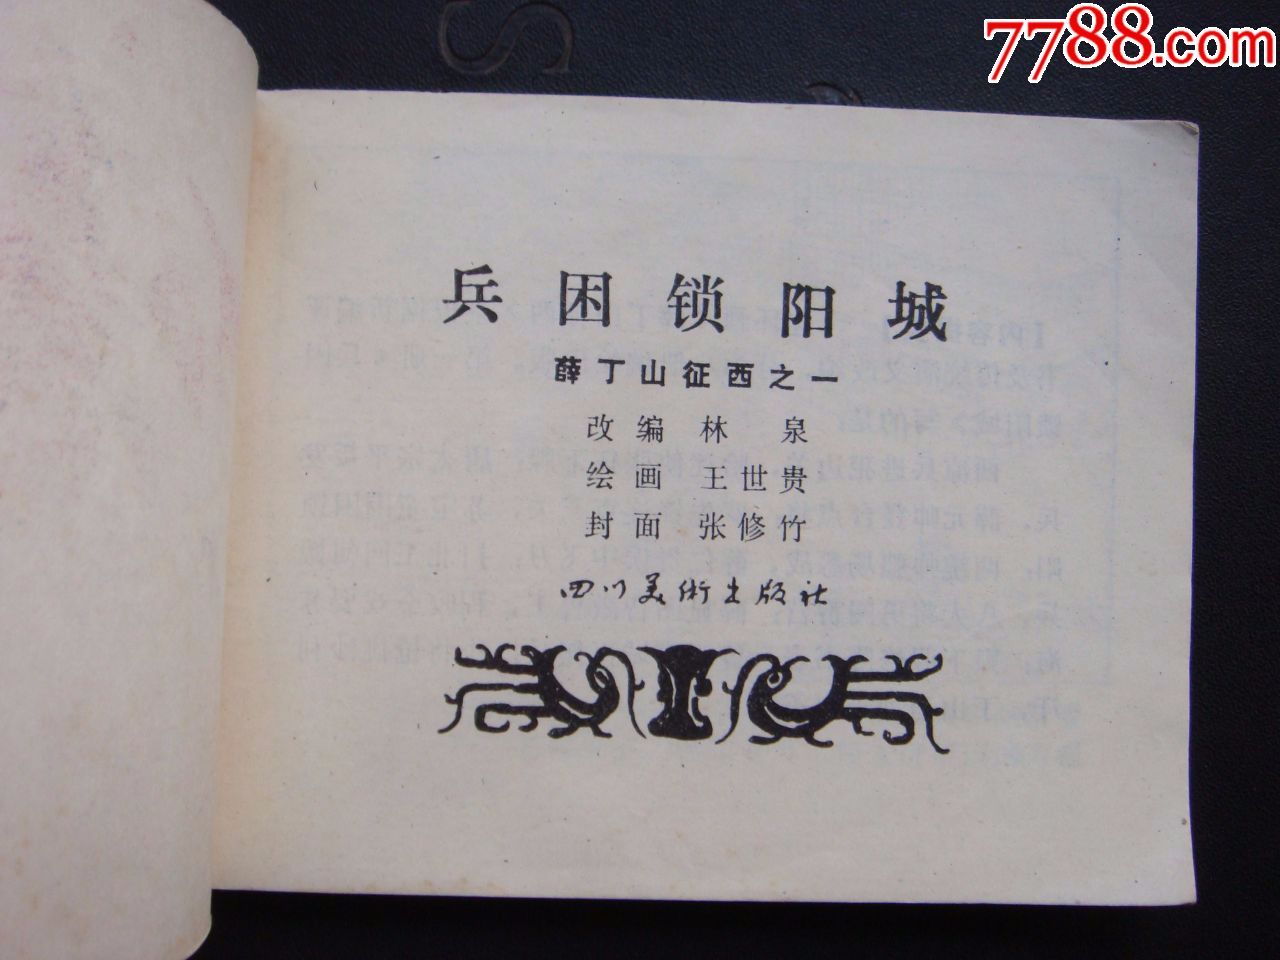 7788.com
兵困锁阳城
薛丁山征西之一
改编 林 泉
绘画 王世贵
封面 张修竹
四川美術出版社